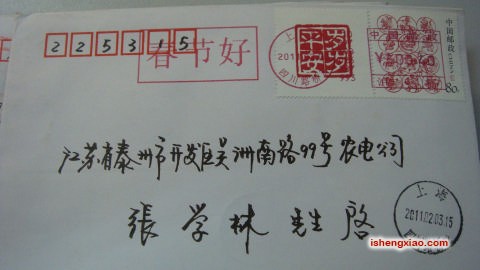 225315
春节好
岁岁平安
中国邮政
80分
上海
江苏省泰州市开发区吴洲南路99号农电公司
张学林先生 启
上海
2011.02.03.15
ishengxiao.com